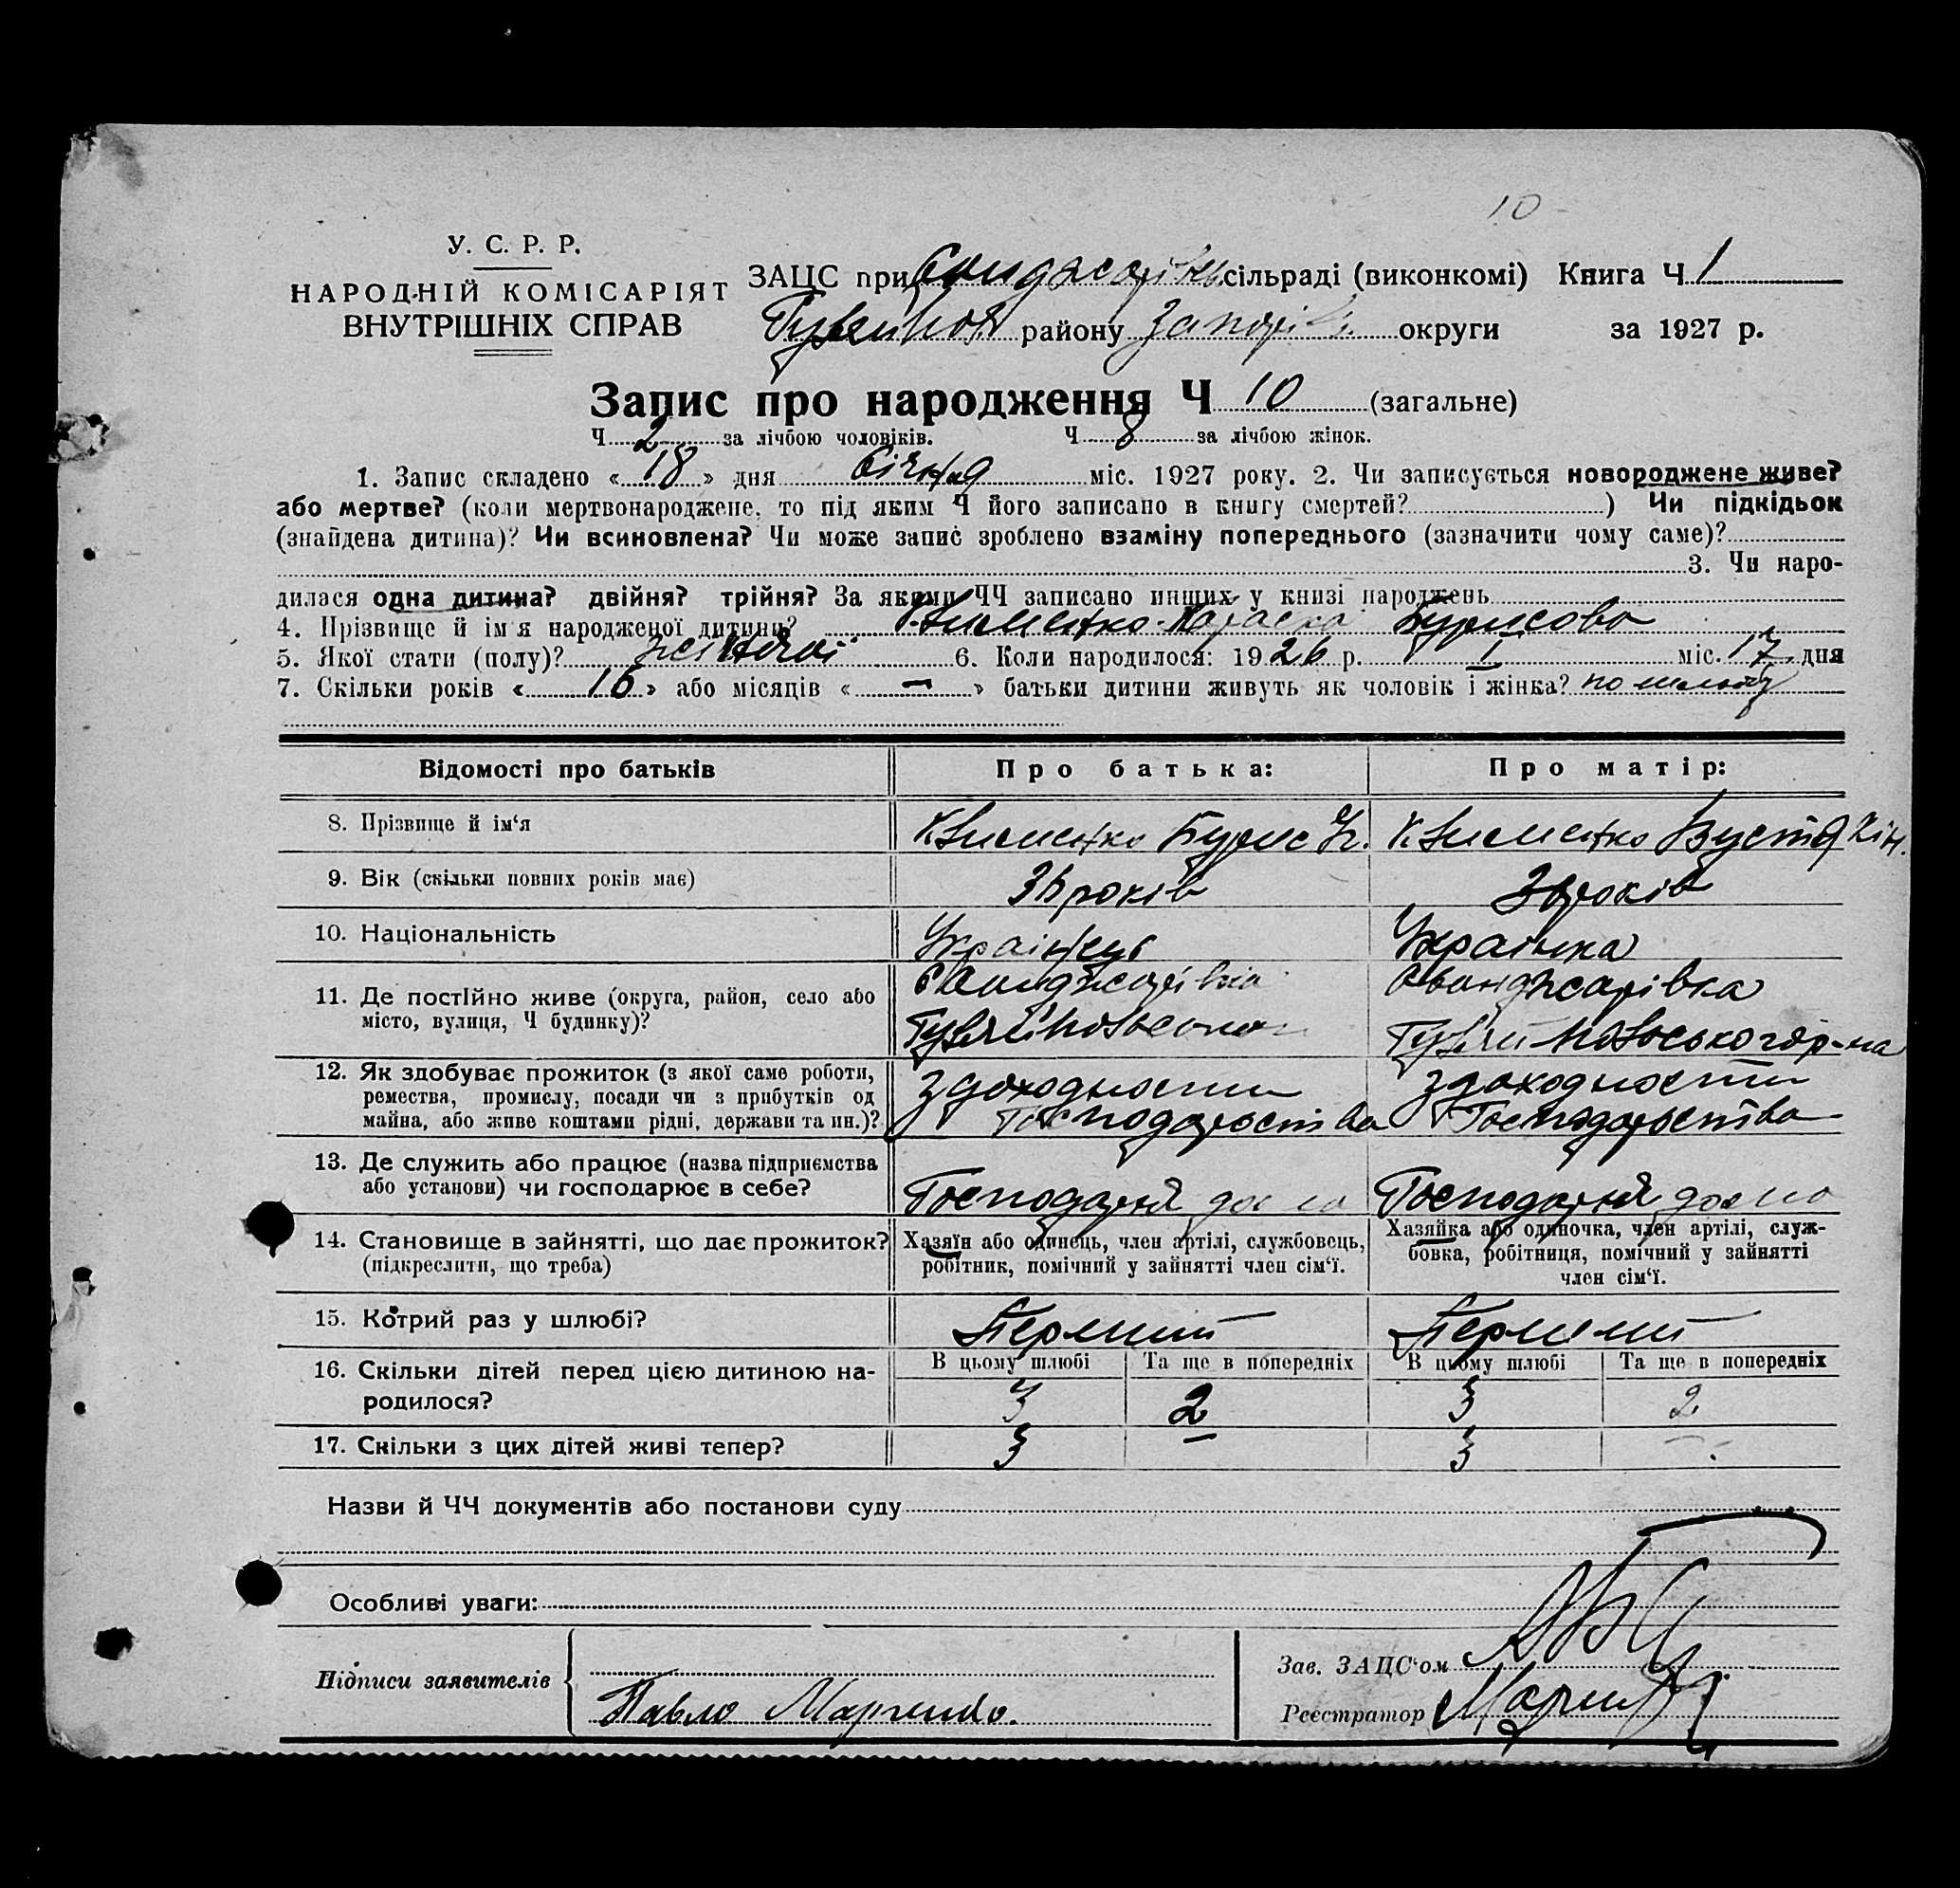 10
У. С. Р. Р.
НАРОДНІЙ КОМІСАРІЯТ
ВНУТРІШНІХ СПРАВ
ЗАЦС при сільраді (виконкомі) Книга Ч 1
району округи за 1927 р.
Запис про народження Ч 10 (загальне)
Ч 2 за лічбою чоловіків. Ч 8 за лічбою жінок.
1. Запис складено « 18 » дня Січня міс. 1927 року. 2. Чи записується новороджене живе?
або мертве? (коли мертвонароджене, то під яким Ч його записано в книгу смертей? ) Чи підкідьок
(знайдена дитина)? Чи всиновлена? Чи може запис зроблено взаміну попереднього (зазначити чому саме)?
3. Чи наро-
дилася одна дитина? двійня? трійня? За якими ЧЧ записано инших у книзі народжень
4. Прізвище й ім'я народженої дитини? Клименко Бурисова
5. Якої стати (полу)? жіночої 6. Коли народилося: 1926 р. I міс. 17 дня
7. Скільки років « 16 » або місяців « — » батьки дитини живуть як чоловік і жінка? по шлюбу
Відомості про батьків Про батька: Про матір:
8. Прізвище й ім'я Клименко Бурис Клименко
9. Вік (скільки повних років має) років років
10. Національність Українець Українка
11. Де постійно живе (округа, район, село або
місто, вулиця, Ч будинку)?
12. Як здобуває прожиток (з якої саме роботи, здоходности здоходности
ремества, промислу, посади чи з прибутків од
майна, або живе коштами рідні, держави та ин.)? Господарства Господарьства
13. Де служить або працює (назва підприємства
або установи) чи господарює в себе? Господарня Господарня
14. Становище в зайнятті, що дає прожиток? Хазяїн або одинець, член артілі, службовець, Хазяйка або одиночка, член артілі, служ-
(підкреслити, що треба) робітник, помічний у зайнятті член сім'ї. бовка, робітниця, помічний у зайнятті
член сім'ї.
15. Котрий раз у шлюбі? Перший Перший
16. Скільки дітей перед цією дитиною на- В цьому шлюбі Та ще в попередніх В цьому шлюбі Та ще в попередніх
родилося? 3 2 3 2
17. Скільки з цих дітей живі тепер? 3 — 3 —
Назви й ЧЧ документів або постанови суду
Особливі уваги:
Підписи заявителів
Зав. ЗАЦС'ом
Павло Марченко.
Реєстратор